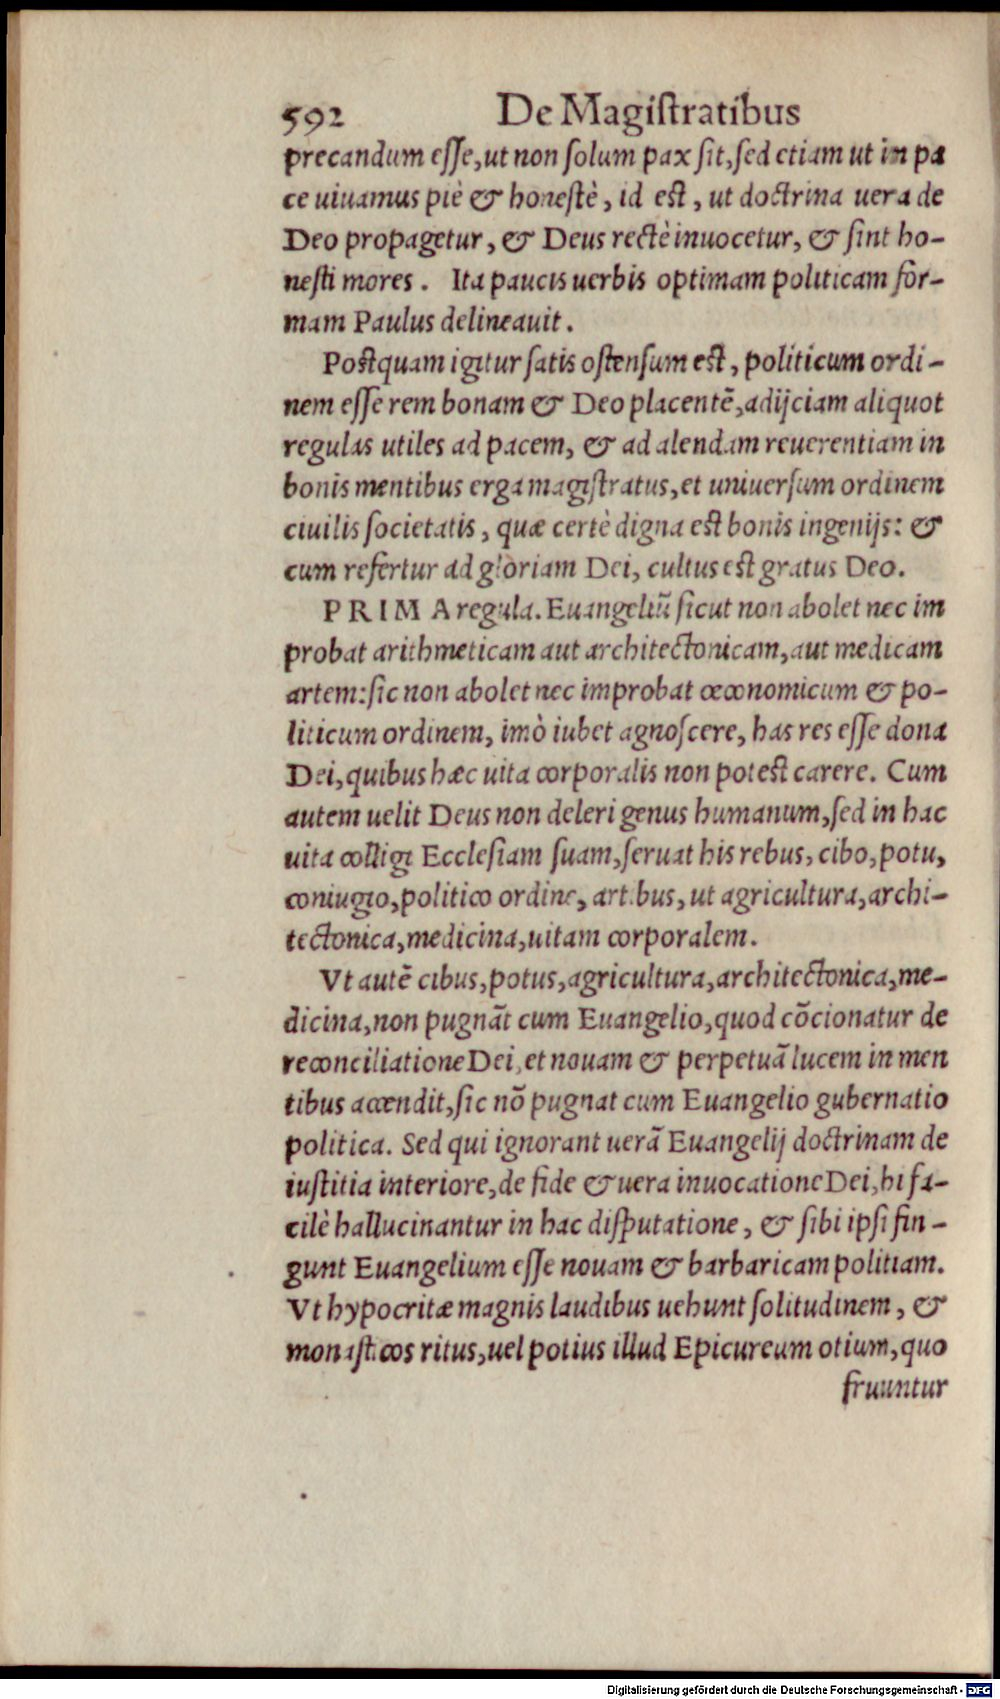 592 De Magiſtratibus
precandum eſſe, ut non ſolum pax ſit, ſed etiam ut in pa
ce uiuamus piè & honeſtè, id eſt, ut doctrina uera de
Deo propagetur, & Deus rectè inuocetur, & ſint ho-
neſti mores. Ita paucis uerbis optimam politicam for-
mam Paulus delineauit.
Poſtquam igitur ſatis oſtenſum eſt, politicum ordi-
nem eſſe rem bonam & Deo placentẽ, adijciam aliquot
regulas utiles ad pacem, & ad alendam reuerentiam in
bonis mentibus erga magiſtratus, et uniuerſum ordinem
ciuilis ſocietatis, quæ certè digna eſt bonis ingenijs: &
cum refertur ad gloriam Dei, cultus eſt gratus Deo.
PRIMA regula. Euangeliũ ſicut non abolet nec im
probat arithmeticam aut architectonicam, aut medicam
artem: ſic non abolet nec improbat œconomicum & po-
liticum ordinem, imò iubet agnoſcere, has res eſſe dona
Dei, quibus hæc uita corporalis non poteſt carere. Cum
autem uelit Deus non deleri genus humanum, ſed in hac
uita colligi Eccleſiam ſuam, ſeruat his rebus, cibo, potu,
coniugio, politico ordine, artibus, ut agricultura, archi-
tectonica, medicina, uitam corporalem.
Vt autẽ cibus, potus, agricultura, architectonica, me-
dicina, non pugnãt cum Euangelio, quod cõcionatur de
reconciliatione Dei, et nouam & perpetuã lucem in men
tibus accendit, ſic nõ pugnat cum Euangelio gubernatio
politica. Sed qui ignorant uerã Euangelij doctrinam de
iuſtitia interiore, de fide & uera inuocatione Dei, hi fa-
cilè hallucinantur in hac diſputatione, & ſibi ipſi fin-
gunt Euangelium eſſe nouam & barbaricam politiam.
Vt hypocritæ magnis laudibus uehunt ſolitudinem, &
monaſticos ritus, uel potius illud Epicureum otium, quo
fruuntur
Digitalisierung gefördert durch die Deutsche Forschungsgemeinschaft - DFG